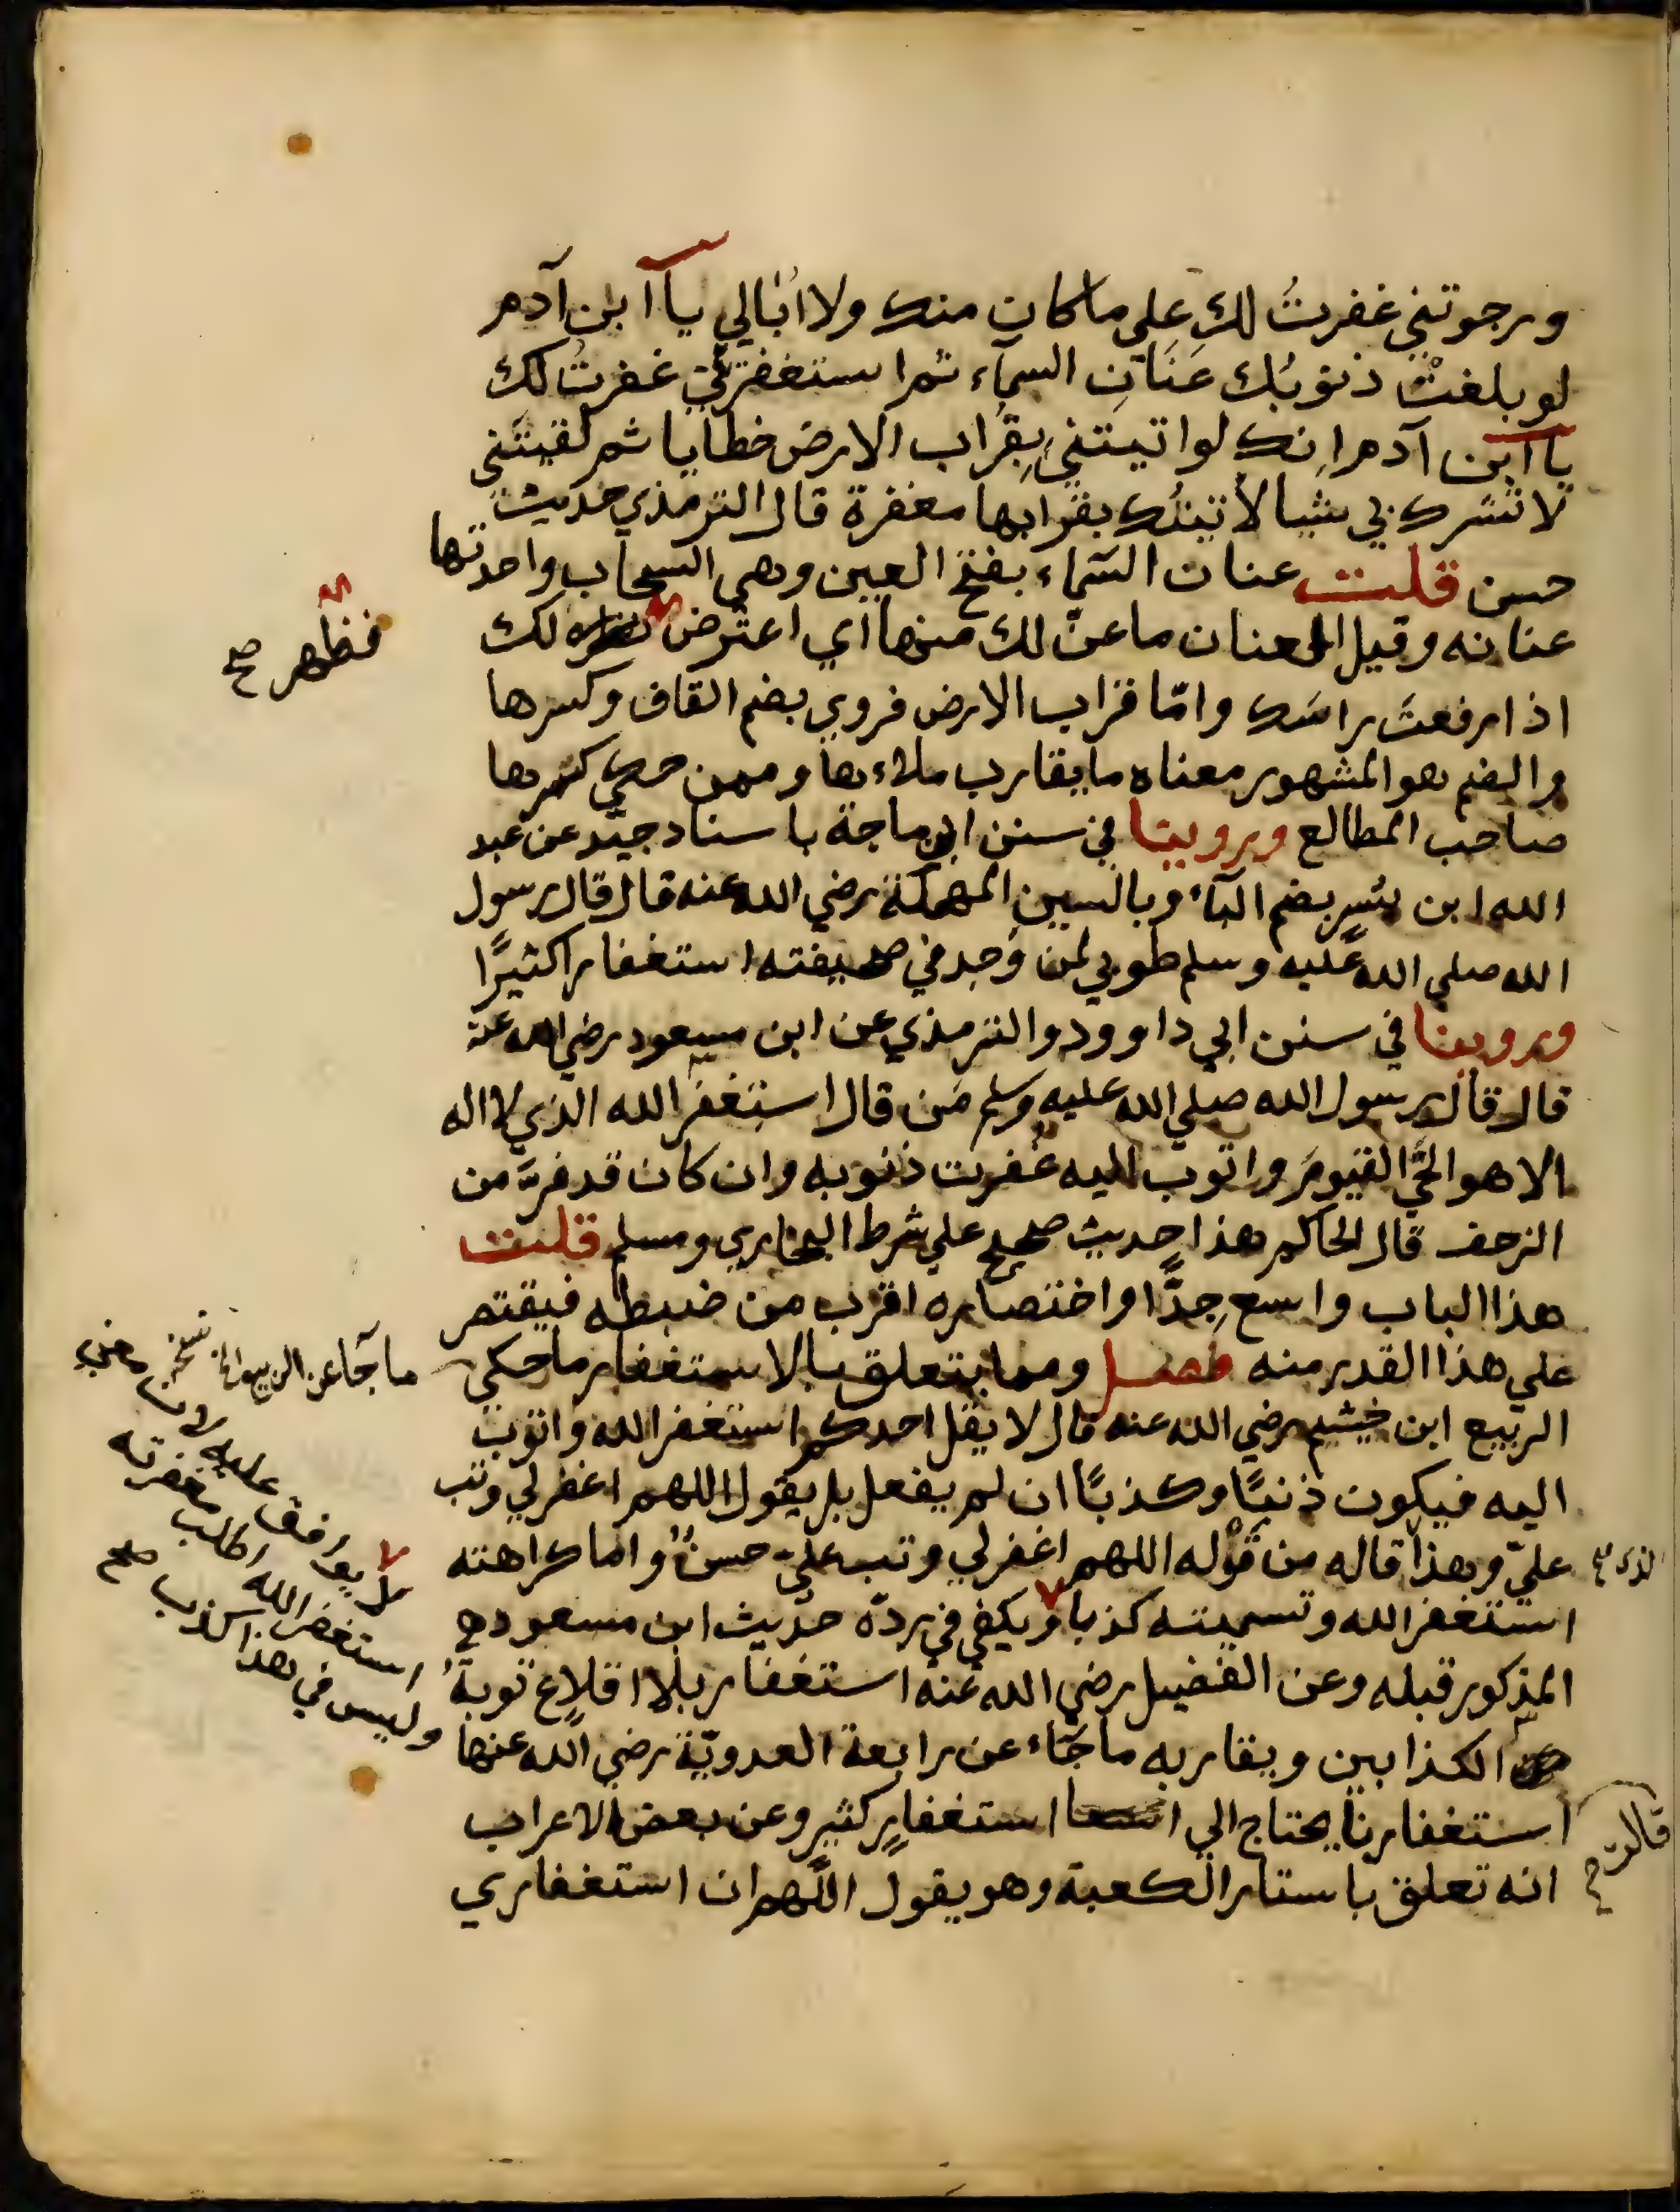 ورجوتني غفرتُ لك على ما كان منك ولا أُبالي يا ابن آدم
لو بلغتْ ذنوبُك عَنَانَ السمآء ثم استغفرتَني غفرتُ لك
يا ابن آدم إنك لو اتيتني بِقُراب الارض خطايا ثم لقيتَني
لا تشرك بي شيا لأتيتُك بقرابها مغفرة قال الترمذي حديث
حسن قلت عنان السّمآء بفتح العين وهي السحاب واحدتها
عنانه وقيل العنان ما عنّ لك منها أي اعترض لك
اذا رفعتَ راسَك وامّا قراب الارض فروي بضم القاف وكسرها
والضم هو المشهور معناه ما يقارب ملاءها وممن حكي كسرها
صاحب المطالع وروينا في سنن ابن ماجة باسناد جيّد عن عبد
الله ابن بُسرٍ بضم البآء وبالسين المهملة رضي الله عنه قال قال رسول
الله صلي الله عليه وسلم طوبي لمن وُجد في صحيفته استغفارا كثيرًا
وروينا في سنن ابي داوود والترمذي عن ابن مسعود رضي الله عنه
قال قال رسول الله صلي الله عليه وسلم مَن قال استغفر الله الذي لا اله
الا هو الحيَّ القيومَ واتوب اليه غُفرت ذنوبه وان كان قد فرَّ من
الزحف قال الحاكم هذا حديث صحيح علي شرط البخاري ومسلم قلت
هذا الباب واسع جِدًّا واختصاره اقرب من ضبطه فيقتصر
علي هذا القدر منه فصل ومما يتعلق بالاستغفار ما حكي
الربيع ابن خيثم رضي الله عنه قال لا يقل احدكم استغفر الله واتوب
اليه فيكون ذنبًا وكذبًا ان لم يفعل بل يقول اللهم اغفر لي وتب
عليّ وهذا قاله من قوله اللهم اغفر لي وتب عليّ حسنٌ واما كراهته
استغفر الله وتسميته كذبا ويكفي في ردّه حديث ابن مسعود
المذكور قبله وعن الفضيل رضي الله عنه استغفار بلا اقلاع توبةُ
الكذابين ويقاربه ما جآء عن رابعة العدويّة رضي الله عنها
استغفارنا يحتاج الي استغفارٍ كثير وعن بعض الاعراب
انه تعلق باستار الكعبة وهو يقول اللّهم ان استغفاري
فظهر صح
ما جآ عن الربيع
لا يوافق عليه لان معني
استغفر الله اطلب مغفرته
وليس في هذا كذب صح
الذي صح
قالت صح